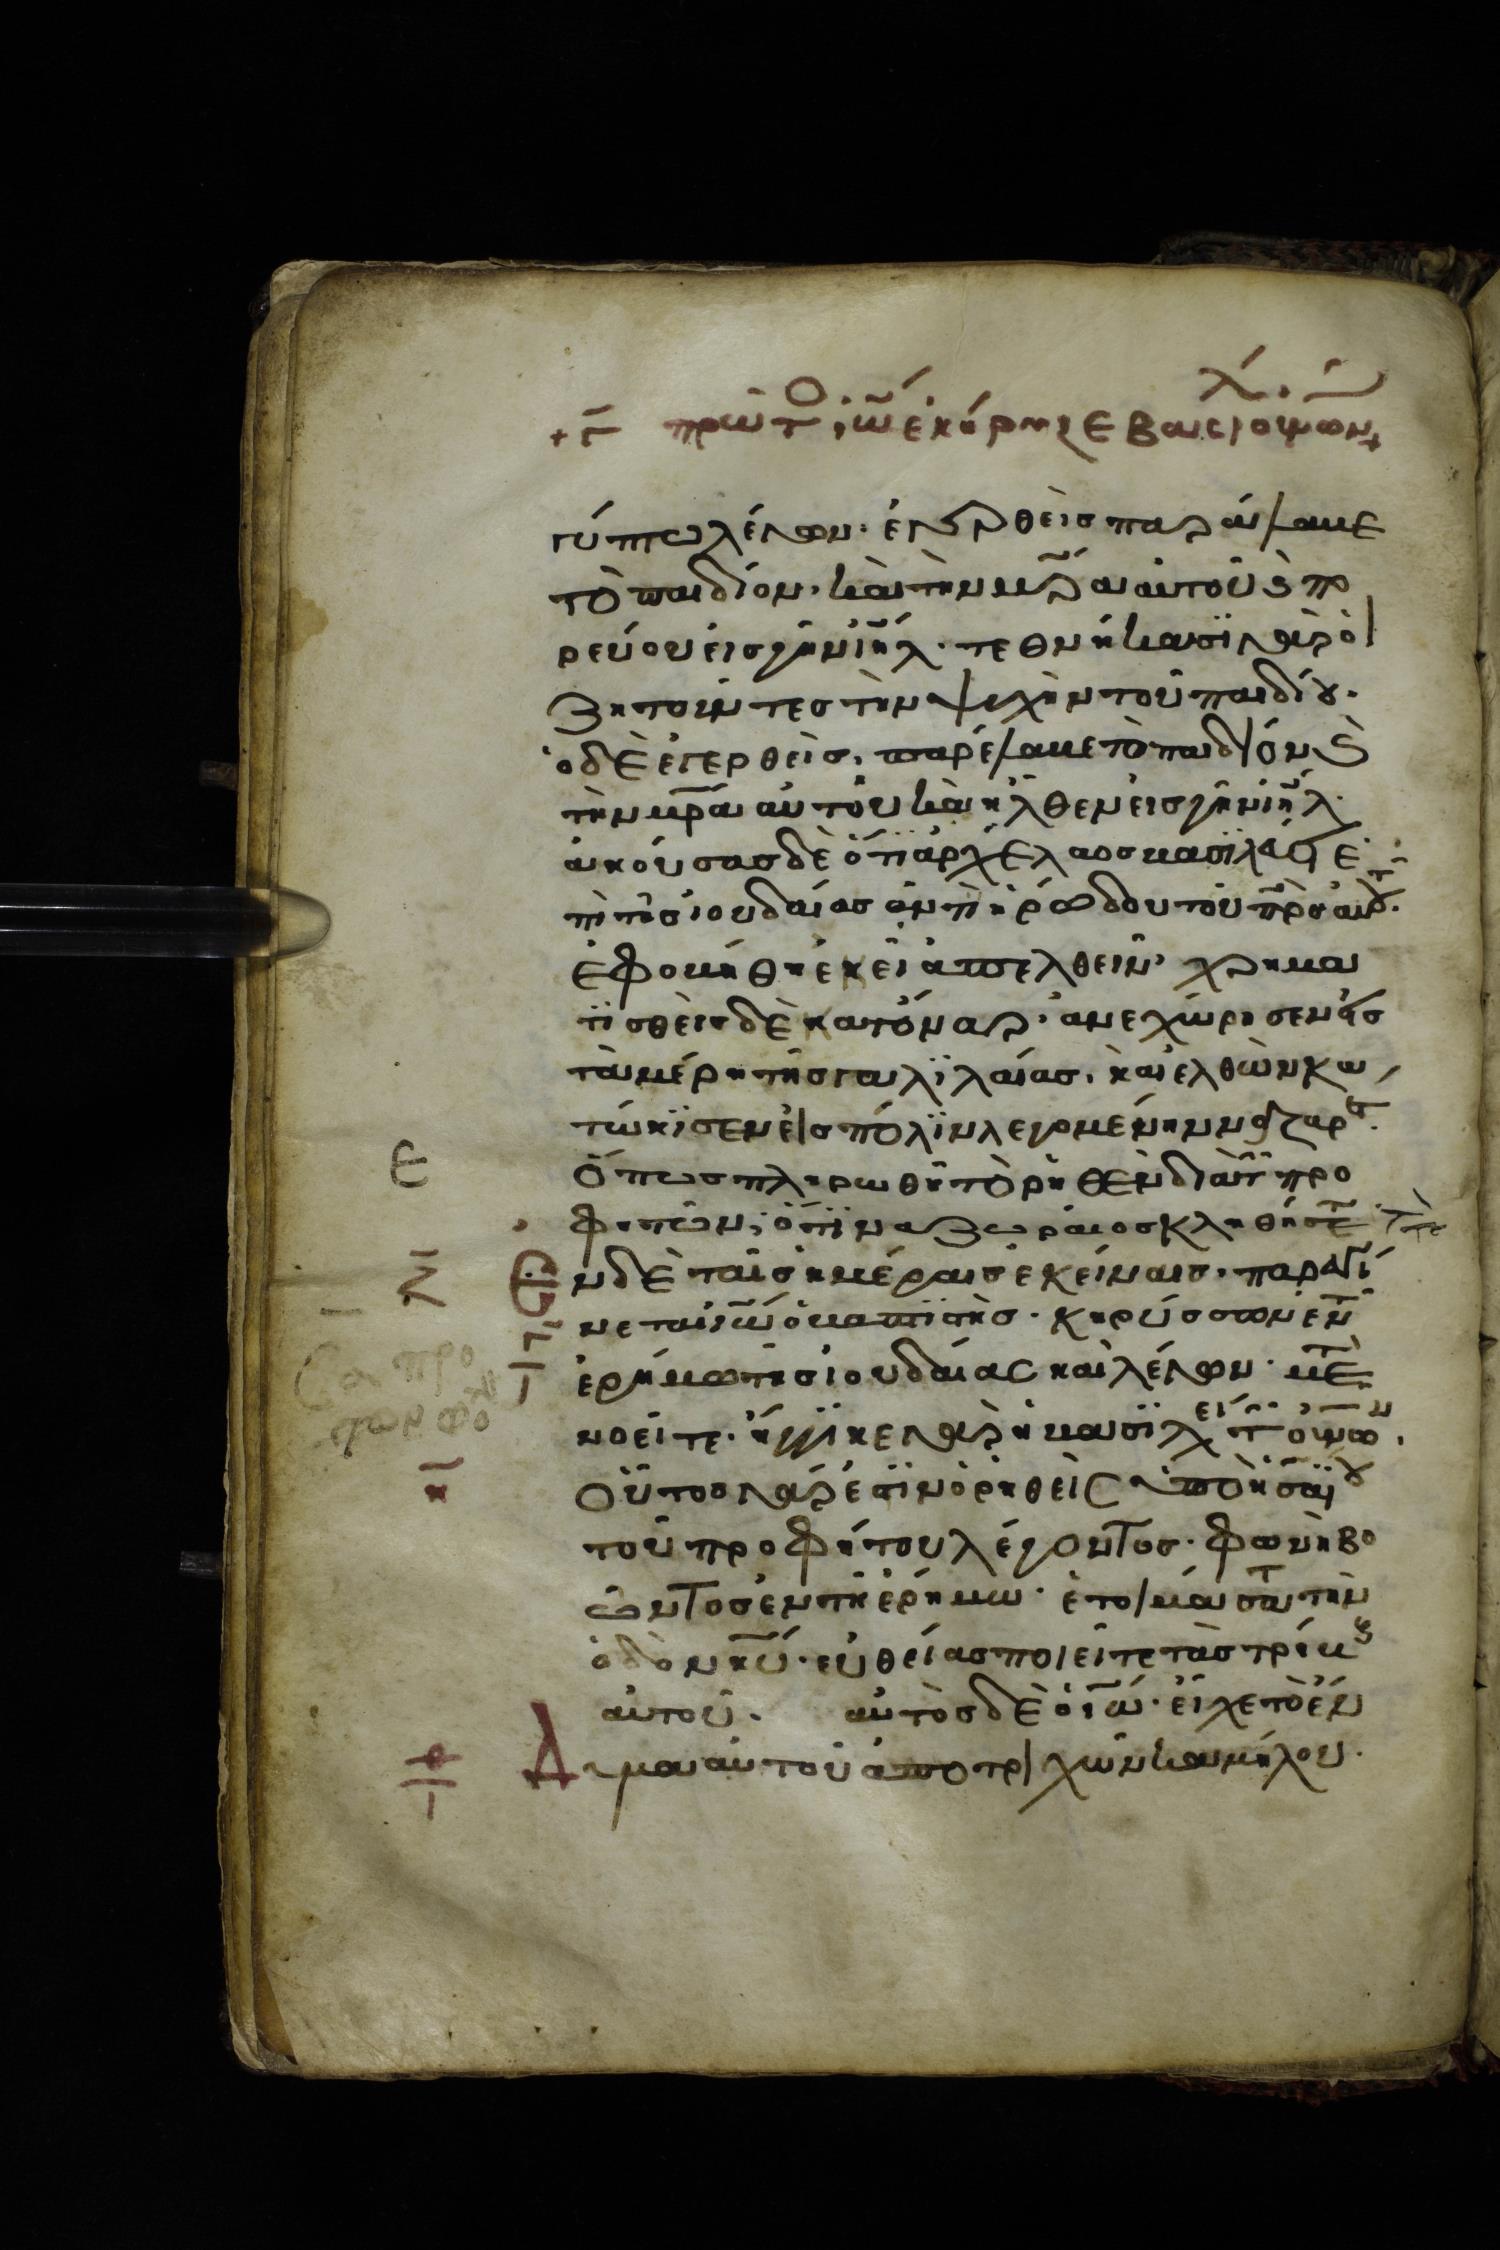 + Γ̄ πρῶτος ἰω̄ ἐκήρυξε βασιλ οὐρανῶν +
γύπτω λέγων· ἐγερθεὶς παράλαβε
τὸ παιδίον· καὶ τὴν μρ̄α αὐτοῦ καὶ πο
ρεύου εἰς γῆν ιη̄λ· τεθνήκασϊ γὰρ οἱ
ζητοῦντες τὴν ψυχὴν τοῦ παιδίου·
ὁ δὲ ἐγερθεὶς, παρέλαβε τὸ παιδίον καὶ
τὴν μρ̄α αὐτοῦ καὶ ἦλθεν εἰς γῆν ιη̄λ·
ἀκούσας δὲ ὅτϊ ἀρχέλαος βασϊλεύει ἐ
πὶ τῆς ἰουδαίας ἀντὶ ἡρώδου τοῦ πρ̄ς αὐτοῦ·
ἐφοβήθη ἐκεῖ ἀπελθεῖν· χρημα
τϊσθεὶς δὲ κατόναρ· ἀνεχώρησεν εἰς
τὰ μέρη τῆς γαλϊλαίας· καὶ ἐλθὼν κα
τώκϊσεν εἰς πόλϊν λεγομένην ναζαρετ·
ὅπως πληρωθῆ τὸ ῥηθὲν διὰ τῶν προ
φητῶν, ὅτϊ ναζωραῖος κληθήσεται
Εν δὲ ταῖς ἡμέραις ἐκείναις· παραγί
νεται ἰω̄ ὁ βαπτϊστὴς· κηρύσσων ἐν τῆ
ἐρήμω τῆς ἰουδαίας καὶ λέγων· μετα
νοεῖτε· ἤγγϊκε γὰρ ἡ βασϊλεία τῶν οὐρανῶν·
οὗτος γάρ ἐστϊν ὁ ῥηθεὶς ὑπὸ ἠσαΐου
τοῦ προφήτου λέγοντος· φωνὴ βο
ῶντος ἐν τῆ ἐρήμω· ἑτοιμάσατε τὴν
ὁδὸν κῡ· εὐθείας ποιεῖτε τὰς τρίβους
αὐτοῦ· αὐτὸς δὲ ὁ ἰω̄· εἶχε τὸ ἔν
Δυμα αὐτοῦ ἀπὸ τριχῶν καμήλου·
Ε
Ζ
η